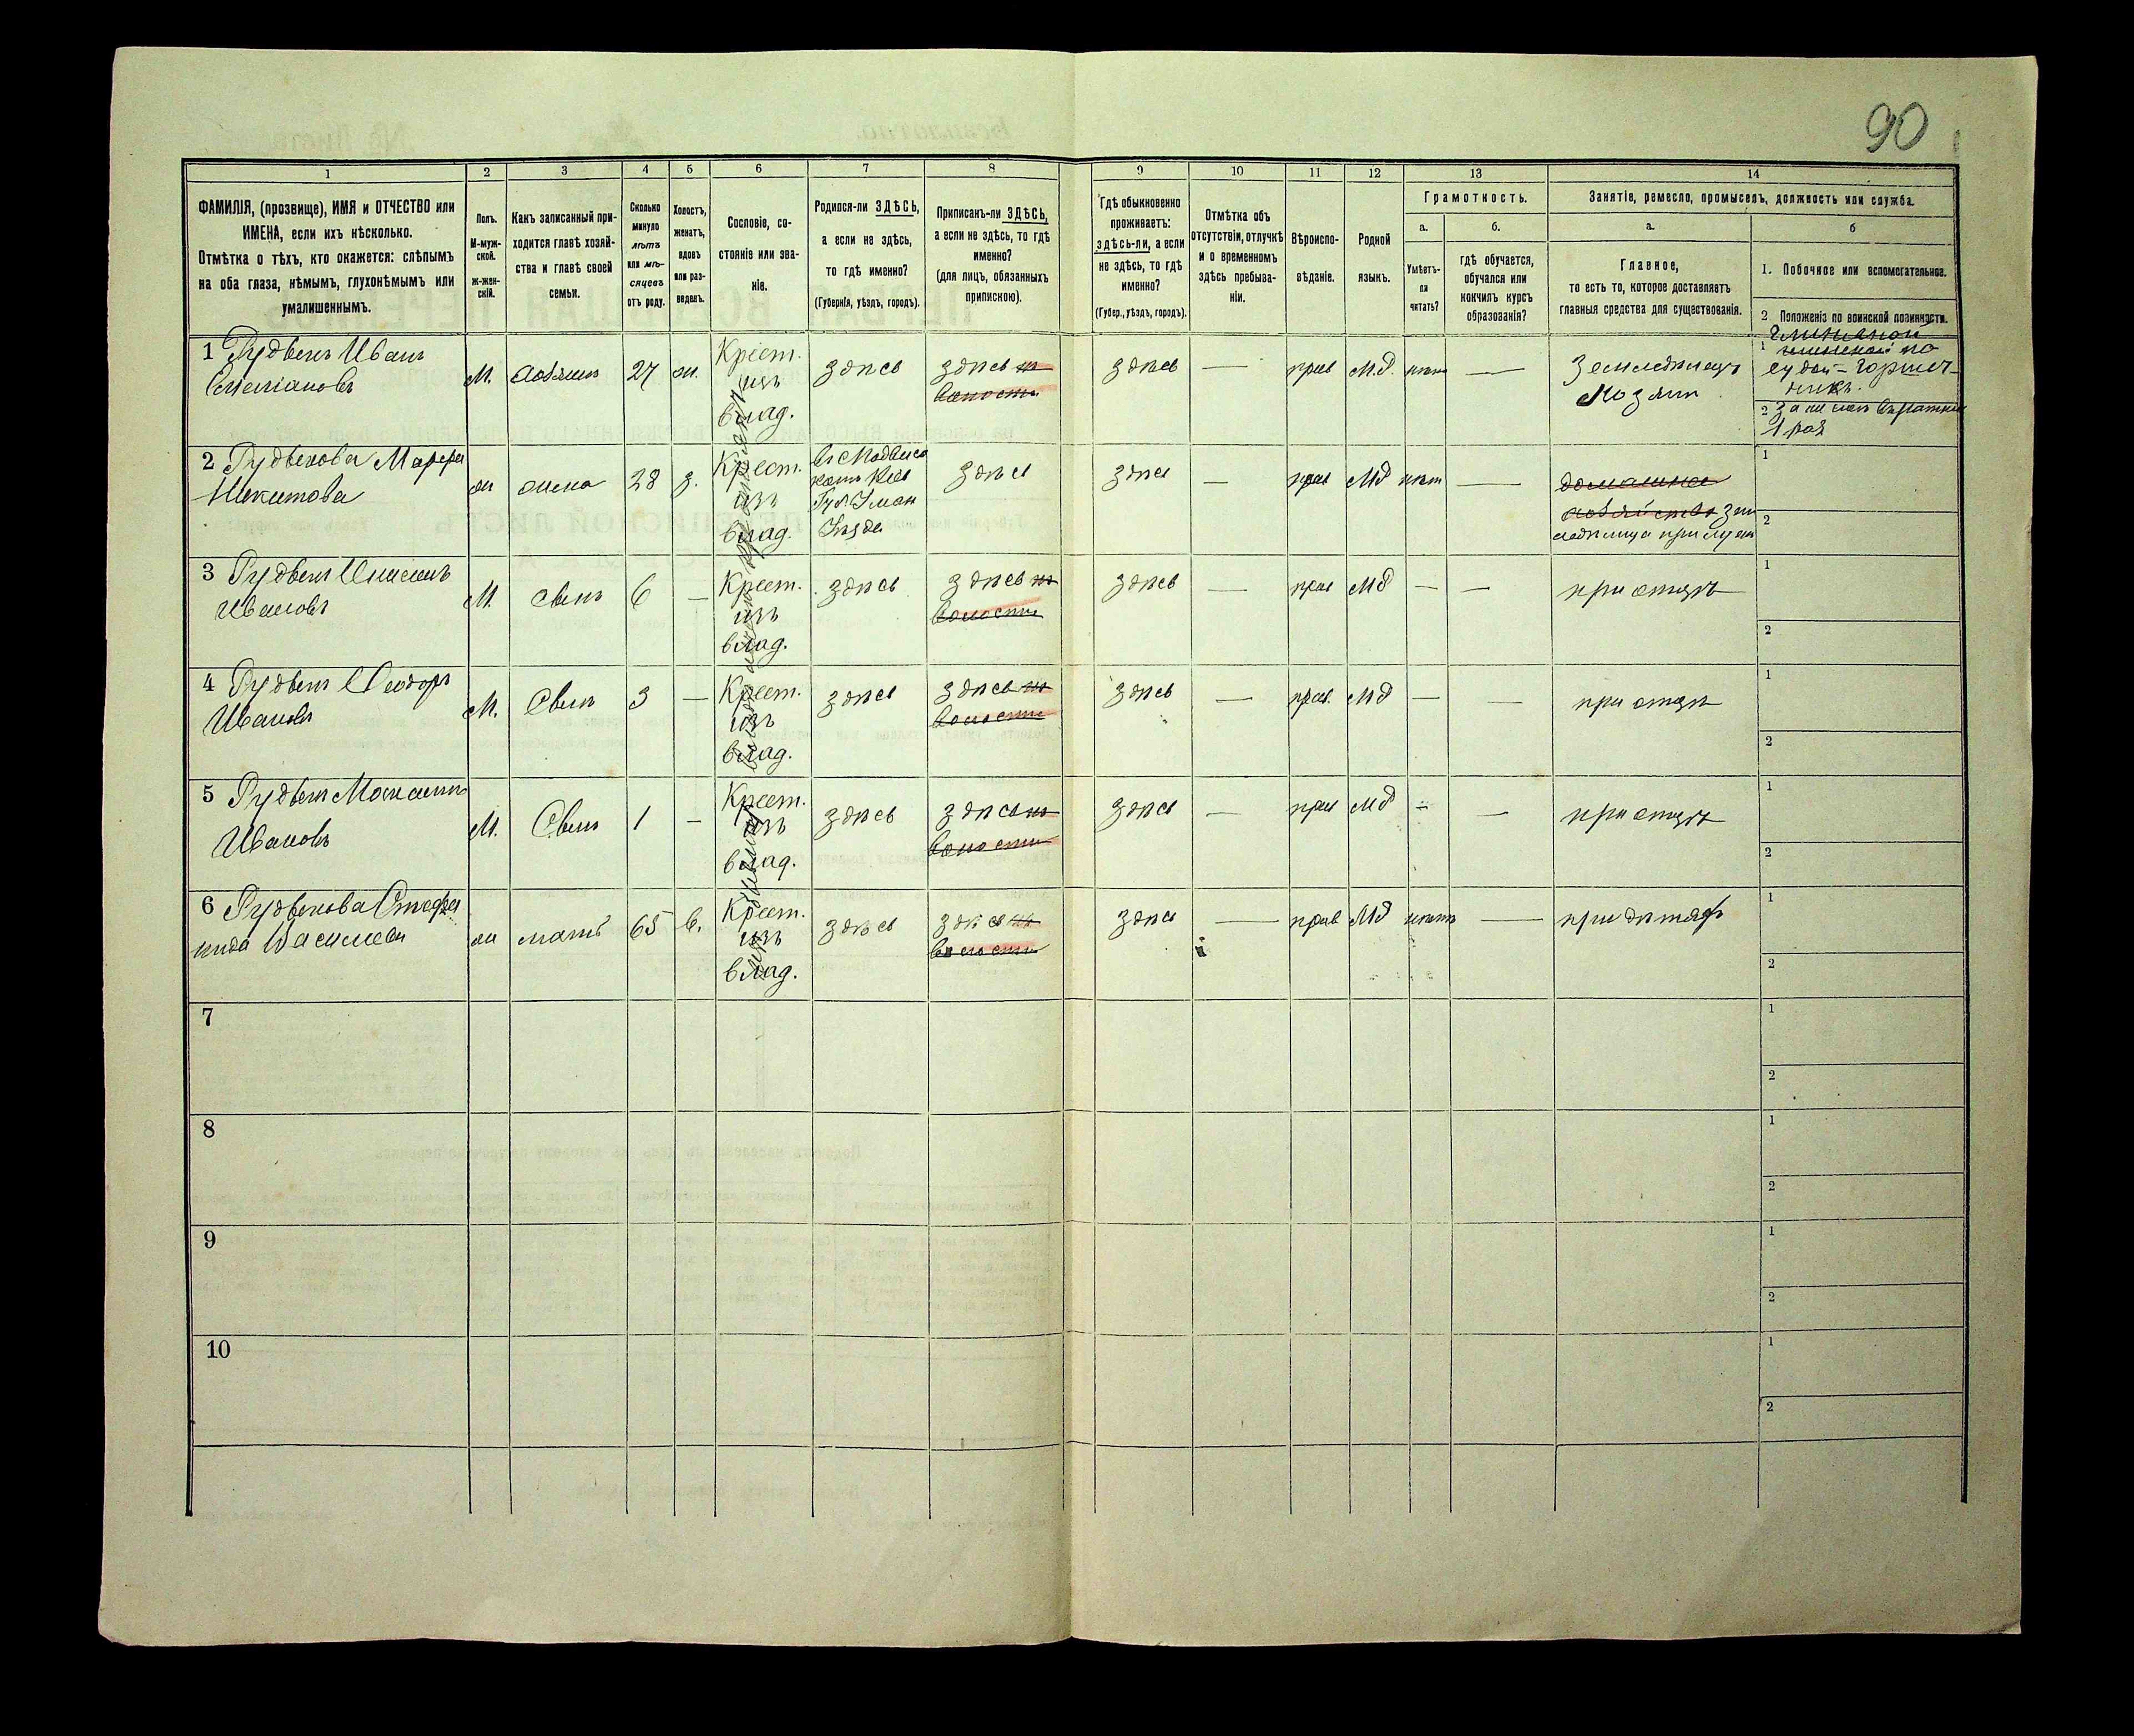 90
1 2 3 4 5 6 7 8 9 10 11 12 13 14
ФАМИЛІЯ, (прозвище), ИМЯ и ОТЧЕСТВО или
ИМЕНА, если ихъ нѣсколько.
Отмѣтка о тѣхъ, кто окажется: слѣпымъ
на оба глаза, нѣмымъ, глухонѣмымъ или
умалишеннымъ.
Полъ.
М-муж-
ской.
ж-жен-
скій.
Какъ записанный при-
ходится главѣ хозяй-
ства и главѣ своей
семьи.
Сколько
минуло
лѣтъ
или мѣ-
сяцевъ
отъ роду.
Холостъ,
женатъ,
вдовъ
или раз-
веденъ.
Сословіе, со-
стояніе или зва-
ніе.
Родился-ли ЗДѢСЬ,
а если не здѣсь,
то гдѣ именно?
(Губернія, уѣздъ, городъ).
Приписанъ-ли ЗДѢСЬ,
а если не здѣсь, то гдѣ
именно?
(для лицъ, обязанныхъ
припискою).
Гдѣ обыкновенно
проживаетъ:
здѣсь-ли, а если
не здѣсь, то гдѣ
именно?
(Губер., уѣздъ, городъ).
Отмѣтка объ
отсутствіи, отлучкѣ
и о временномъ
здѣсь пребыва-
ніи.
Вѣроиспо-
вѣданіе.
Родной
языкъ.
Грамотность.
а.
Умѣетъ-
ли
читать?
б.
гдѣ обучается,
обучался или
кончилъ курсъ
образованія?
Занятія, ремесло, промыселъ, должность или служба.
а.
Главное,
то есть то, которое доставляетъ
главныя средства для существованія.
б
1. Побочное или вспомогательное.
2 Положеніе по воинской повинности.
1 Рудвенъ Иванъ
М. хозяинъ 27 ж.
Крест.
изъ
влад.
здѣсь здѣсь
волости
здѣсь — прав М.д. нѣтъ —
Земледѣлецъ
хозяинъ
1
2
1 раз
2 Рудвенова Марфа
Никитова
ж жена 28 з.
Крест.
изъ
влад.
Губ Уман
Уѣзда
здѣсь здѣсь — прав Мд нѣтъ —
домашнее
хозяйство
1
2
3 Рудвенъ
Ивановъ
М. сынъ 6 —
Крест.
изъ
влад.
здѣсь здѣсь
волости
здѣсь — прав Мд — — при отцѣ
1
2
4 Рудвенъ Ѳеодоръ
Ивановъ
М. Сынъ 3 —
Крест.
изъ
влад.
здѣсь здѣсь
волости
здѣсь — прав. Мд — — при отцѣ
1
2
5 Рудвенъ
Ивановъ
М. Сынъ 1 —
Крест.
изъ
влад.
здѣсь здѣсь
волости
здѣсь — прав Мд — — при отцѣ
1
2
6 Рудвенова Стефа
нида Василева
ж мать 65 в.
Крест.
изъ
влад.
здѣсь здѣсь
волости
здѣсь — прав Мд нѣтъ — при дѣтяхъ
1
2
7
1
2
8
1
2
9
1
2
10
1
2